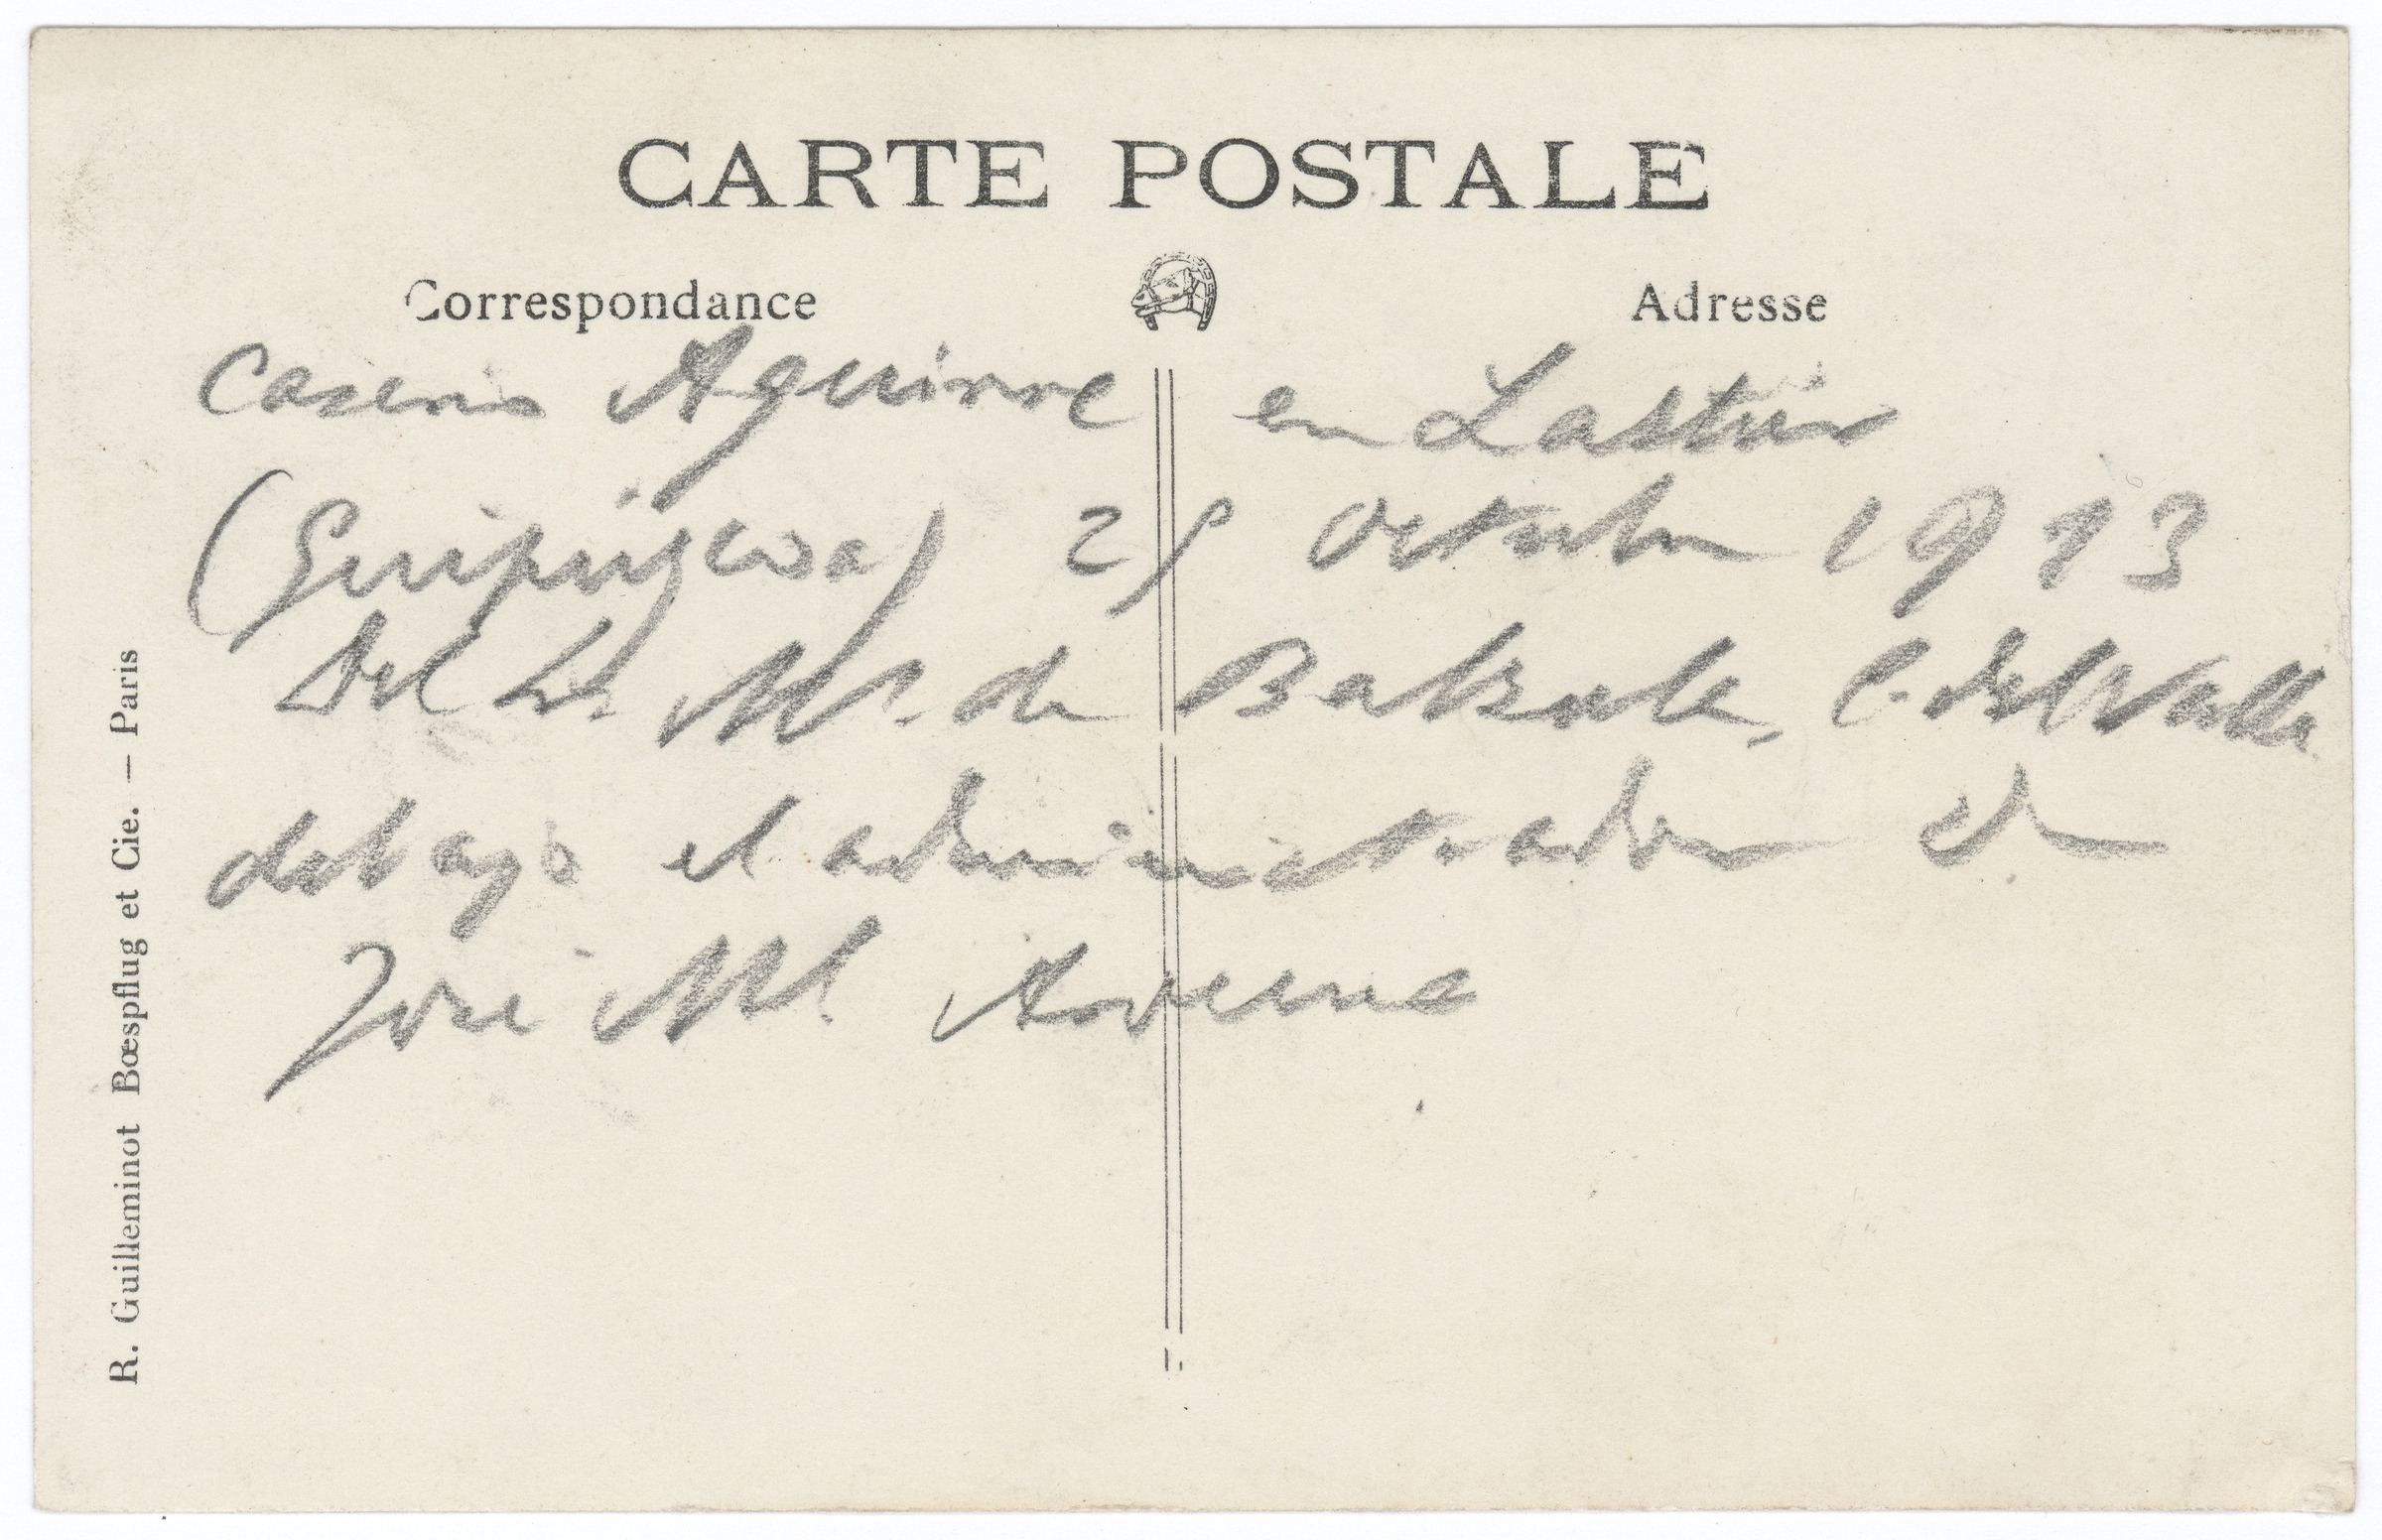 CARTE POSTALE
Correspondance
Adresse
Caserio Aguirre en Lastur
(Guipúzcoa) 25 octubre 1913
Del Sr. M. de C. del Valle
debajo el administrador D
José Ml.
R. Guilleminot Bœspflug et Cie. — Paris